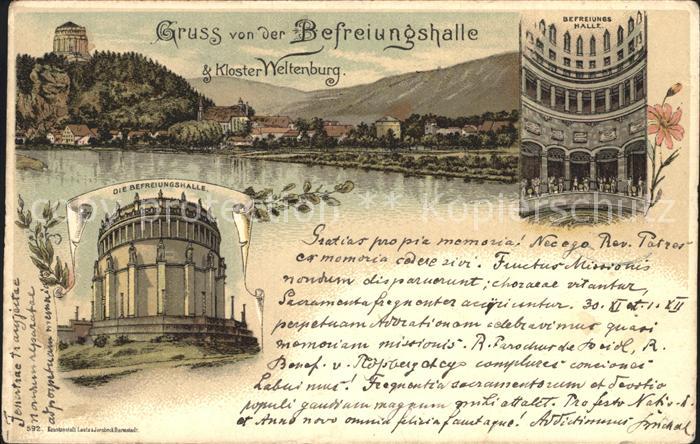 Gruss von der Befreiungshalle
& Kloster Weltenburg.
BEFREIUNGS
HALLE.
DIE BEFREIUNGSHALLE.
Gratias pro pia memoria! Nec ego Rev. Patres
ex memoria cedere sivi. Fructus Missionis
nondum disparuerunt; choraeae vitantur,
Sacramenta frequenter accipiuntur. 30. XI et 1. XII
perpetuam Adorationem celebravimus quasi
memoriam missionis. R. Parochus de R.
Benef. v. complures conciones
habuimus! Frequentia sacramentorum et devotio
populi gaudium magnum mihi attulit. Pro festo Nativ. d.
et Anno novo omnia felicia faustaque! Addictissimus
Fenestrae trajectae
nondum reparatae
ad perpetuam memoriam
592. Kunstanstalt Lautz & Jsenbeck Darmstadt.